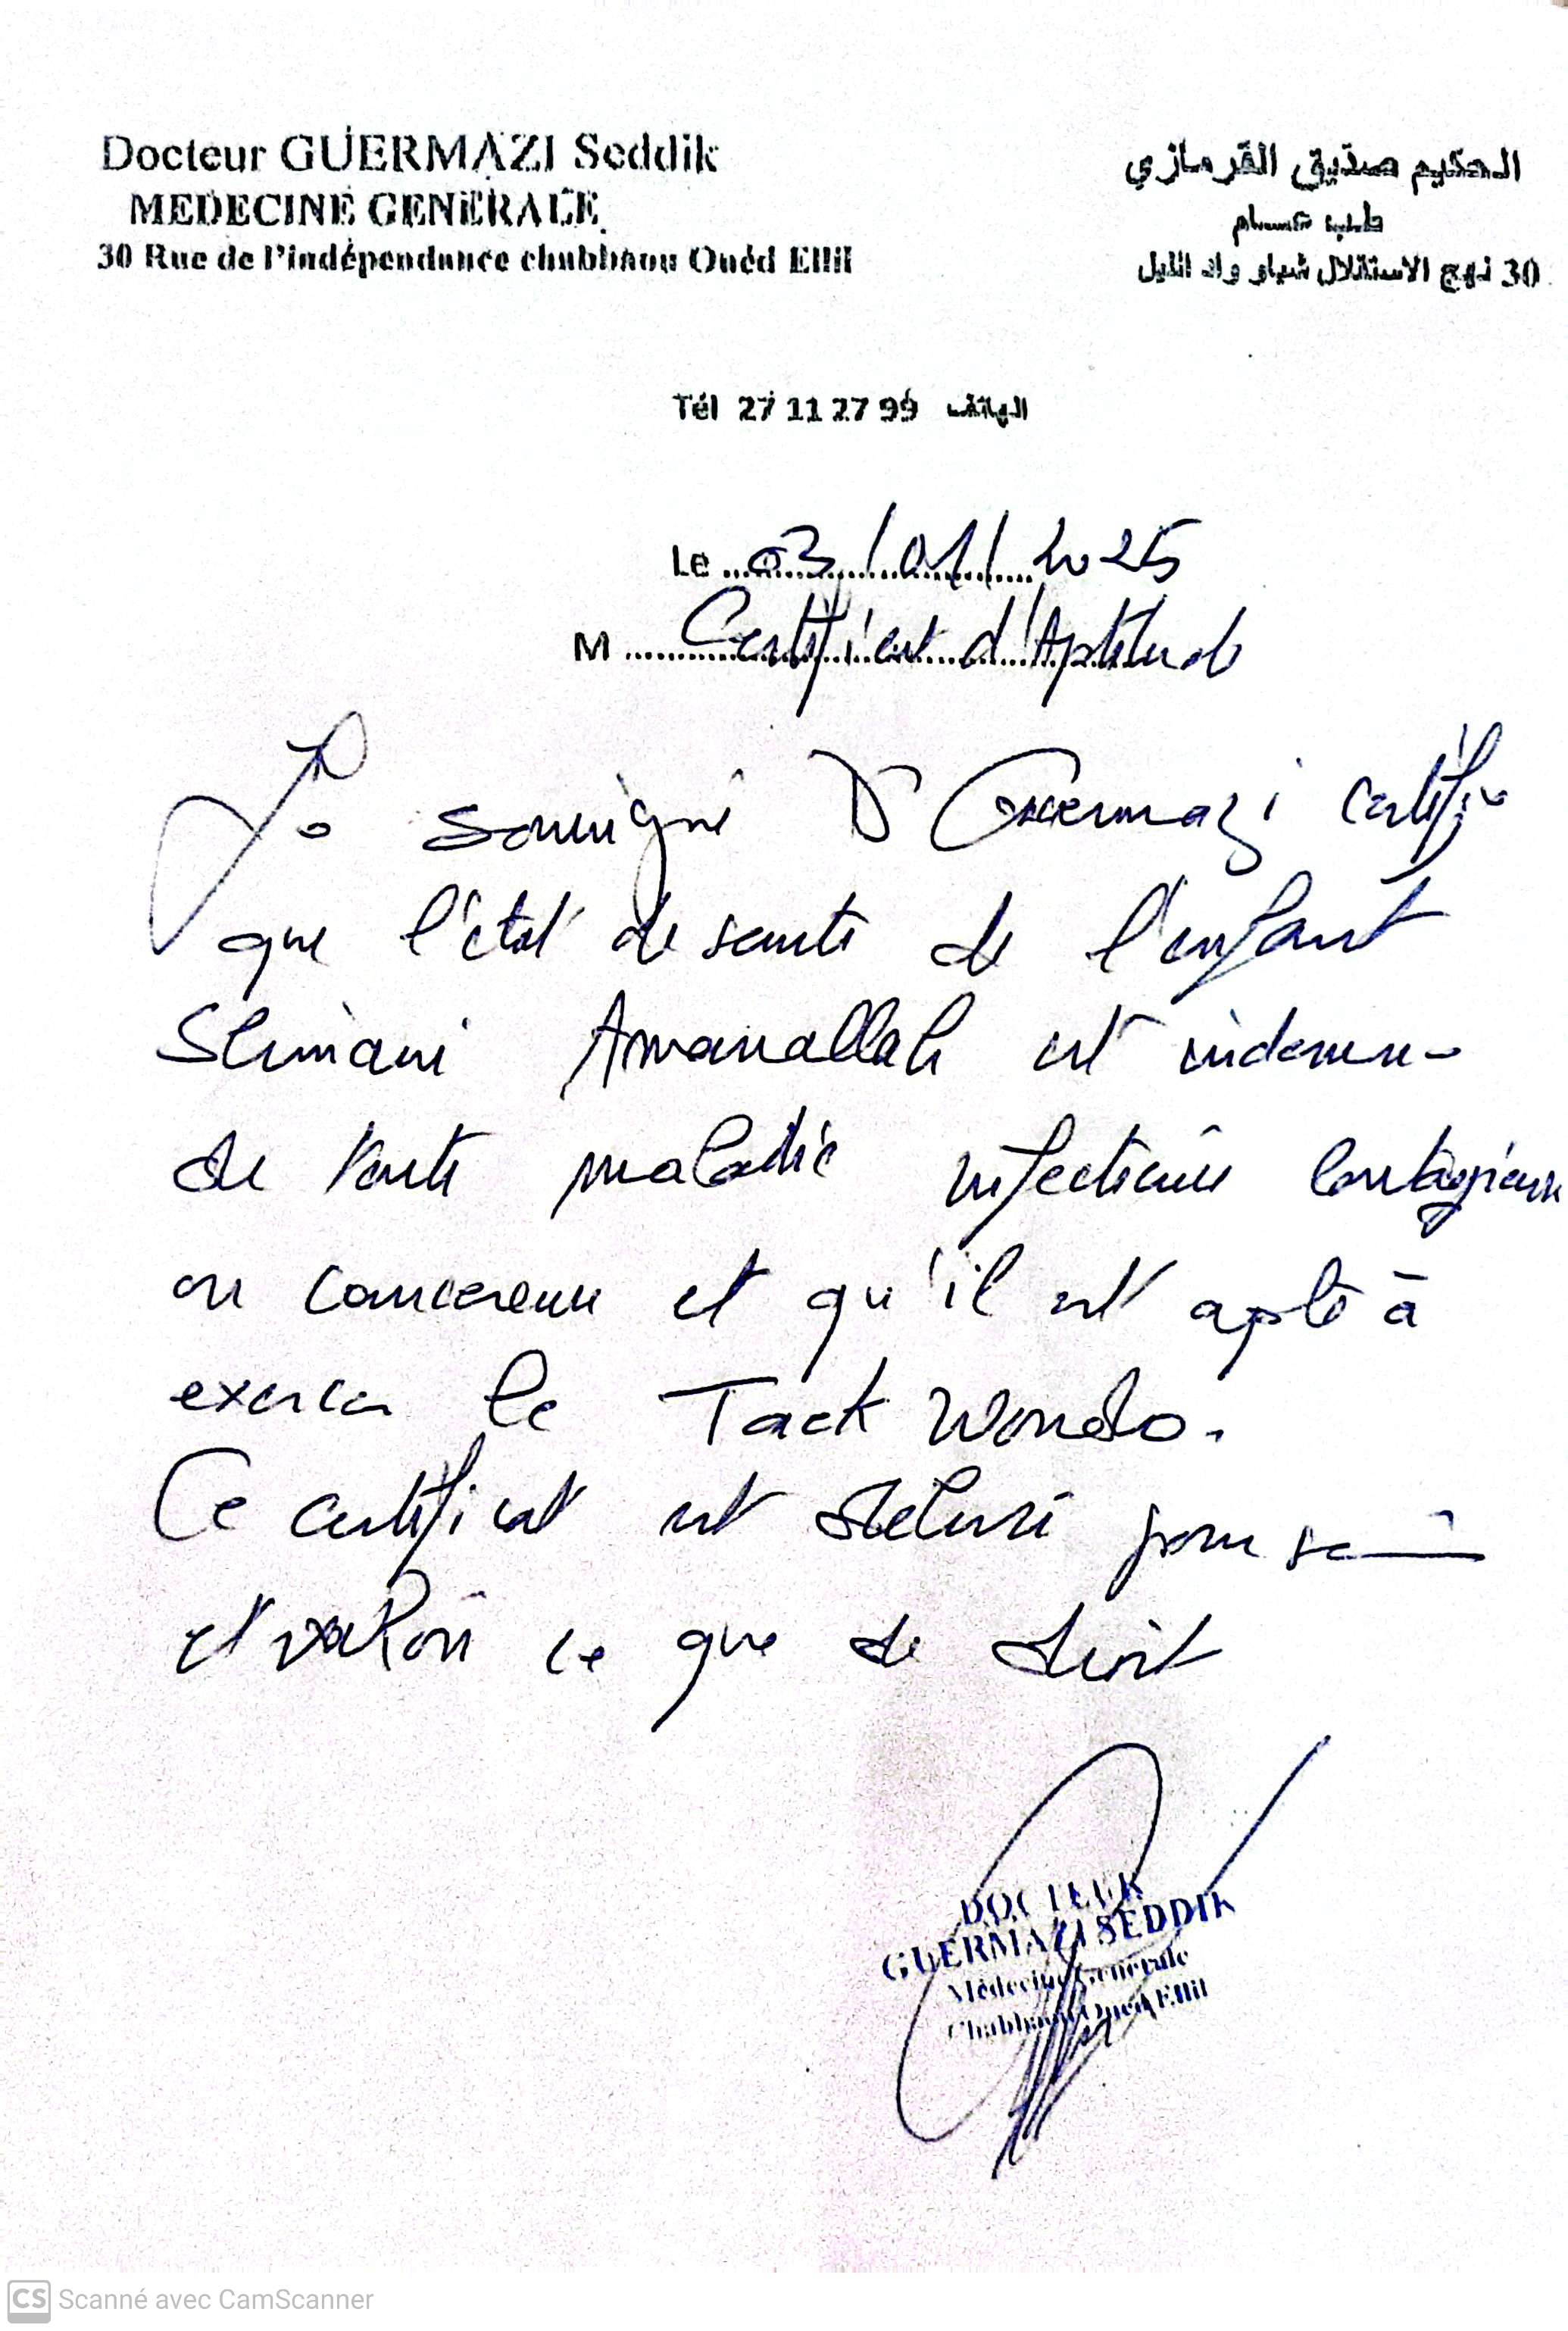 Docteur GUERMAZI Seddik
MEDECINE GENERALE
30 Rue de l'indépendance chabbaou Ouéd Ellil
الحكيم صديق القرمازي
طبيب قسام
30 نهج الاستقلال شباو واد الليل
Tél 27 11 27 99 الهاتف
Le 03/01/2025
M Certificat d'Aptitude
Je soussigné Dr Guermazi certifie
que l'état de santé de l'enfant
Slimani Amanallah est indemne
de toute maladie infectieuse contagieuse
ou cancereuse et qu'il est apte à
exercer le Taek Wondo.
Ce certificat est délivré pour servir
et valoir ce que de droit
DOCTEUR
GUERMAZI SEDDIK
Médecine Générale
Chabbaou Oued Ellil
CS Scanné avec CamScanner